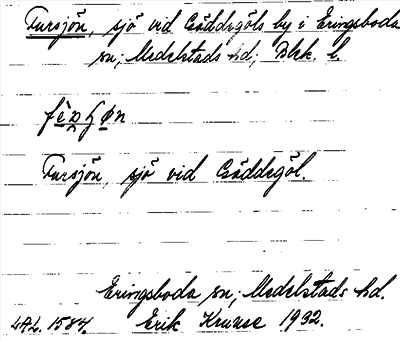 Fursjön, sjö vid Gäddegöls by i Eringsboda
sn; Medelstads hd; Blek. l.
Fursjön, sjö vid Gäddegöl.
Eringsboda sn; Medelstads hd.
LAL. 1587. Erik Kruuse 1932.